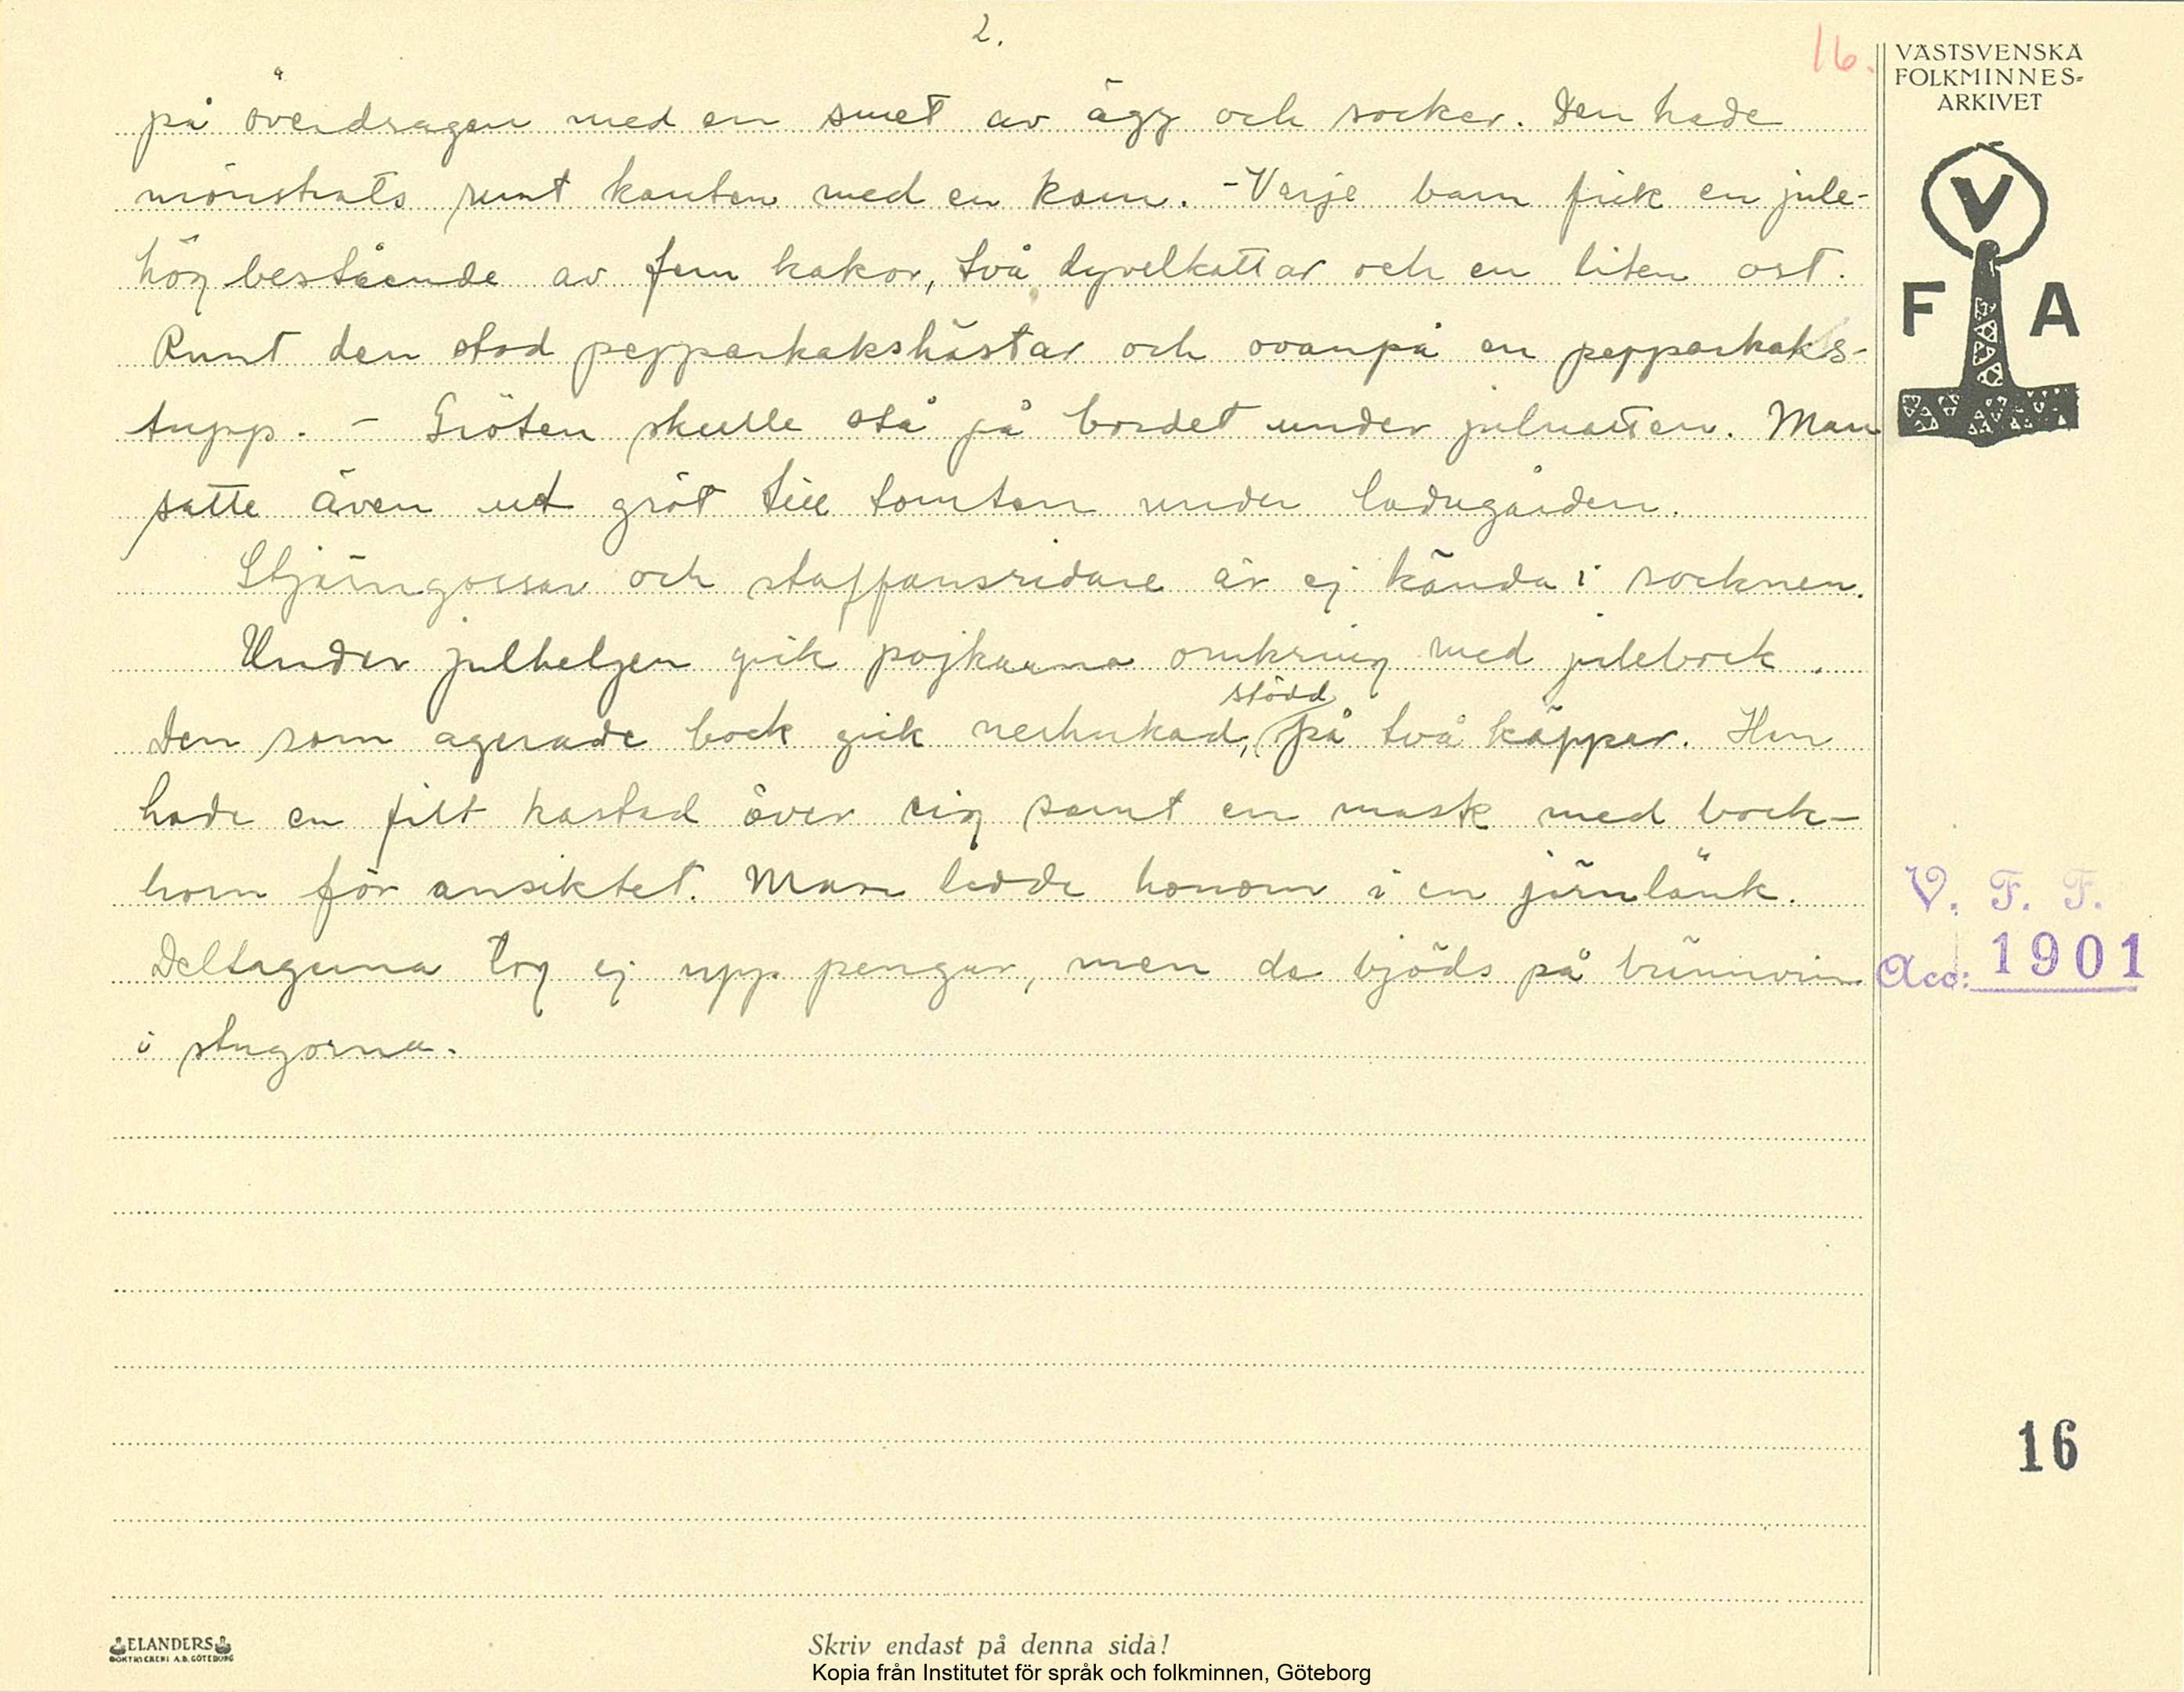 2.
16.
på överdragen med en smet av ägg och socker. Den hade
mönstrats runt kanten med en kam. - Varje barn fick en jule-
hög bestående av fem kakor, två dyvelkattar och en liten ost.
Runt den stod pepparkakshästar och ovanpå en pepparkaks-
tupp. - Gröten skulle stå på bordet under julnatten. Man
satte även ut gröt till tomten under ladugården.
Stjärngossar och staffansridare är ej kända i socknen.
Under julhelgen gick pojkarna omkring med julebock.
Den som agerade bock gick nerhukad, stödd på två käppar. Han
hade en filt kastad över sig samt en mask med bock-
horn för ansiktet. Man ledde honom i en järnlänk.
Deltagarna tog ej upp pengar, men de bjöds på brännvin
i stugorna.
VÄSTSVENSKA
FOLKMINNES-
ARKIVET
V
F A
V. F. F.
Acc: 1901
16
ELANDERS
BOKTRYCKERI A.B. GÖTEBORG
Skriv endast på denna sida!
Kopia från Institutet för språk och folkminnen, Göteborg